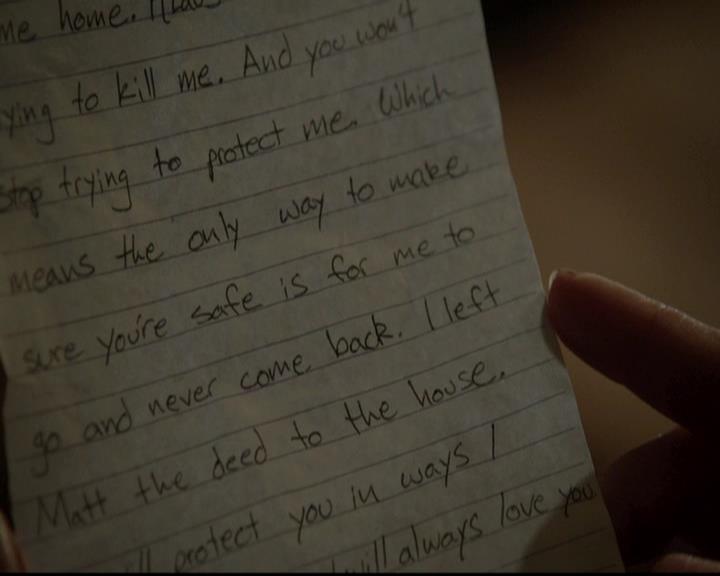 me home.
ying to kill me. And you won't
stop trying to protect me. Which
means the only way to make
sure you're safe is for me to
go and never come back. I left
Matt the deed to the house.
protect you in ways I
will always love you